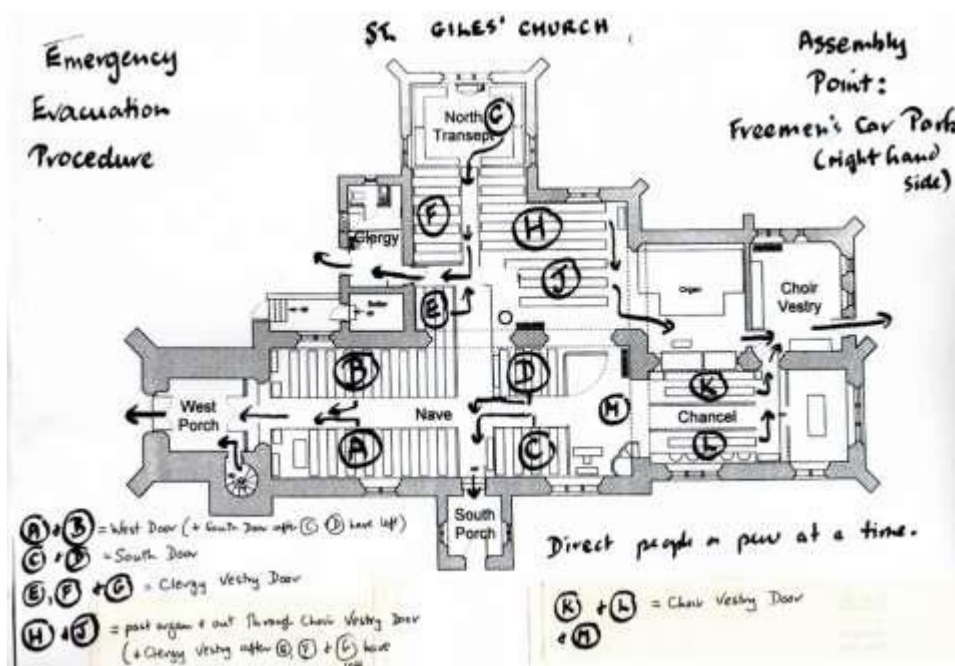 St. GILES' CHURCH
Emergency
Evacuation
Procedure
Assembly
Point:
Freemen's Car Park
(right hand
side)
North
Transept
G
F
H
Clergy
J
Organ
Choir
Vestry
E
B
D
K
M
West
Porch
Nave
Chancel
A
C
L
South
Porch
A + B = West Door (+ South Door after C D have left)
C + D = South Door
E, F + G = Clergy Vestry Door
H + J = past organ + out through Choir Vestry Door
(+ Clergy Vestry after E, F + G have
left
Direct people a pew at a time.
K + L = Choir Vestry Door
+ M